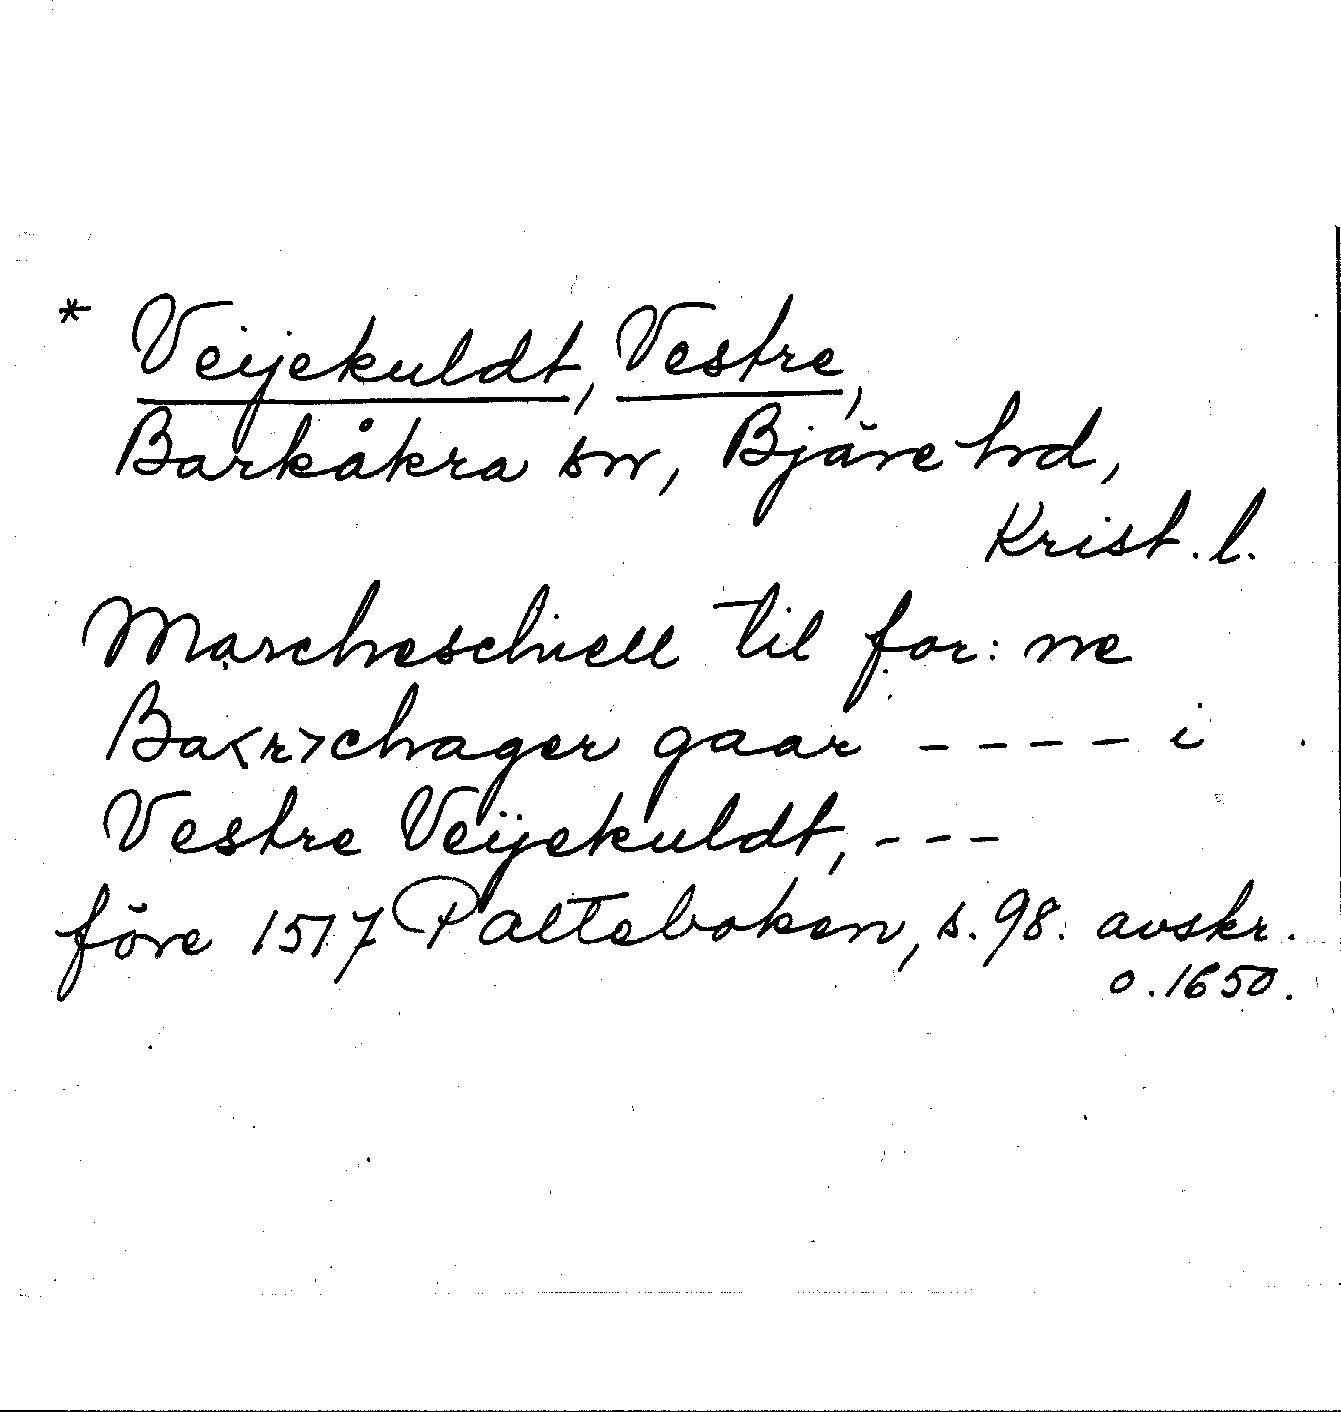 * Veijekuldt, Vestre,
Barkåkra sn, Bjäre hd,
Krist. l.
Marcheschiell til for: ne
Ba<r>chager gaar - - - - i
Vestre Veijekuldt, - - -
före 1517 Palteboken, s. 98. avskr.
o. 1650.